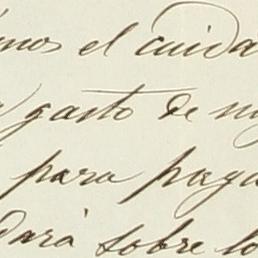 mos el cuida
gasto de m
para paga
dará sobre lo